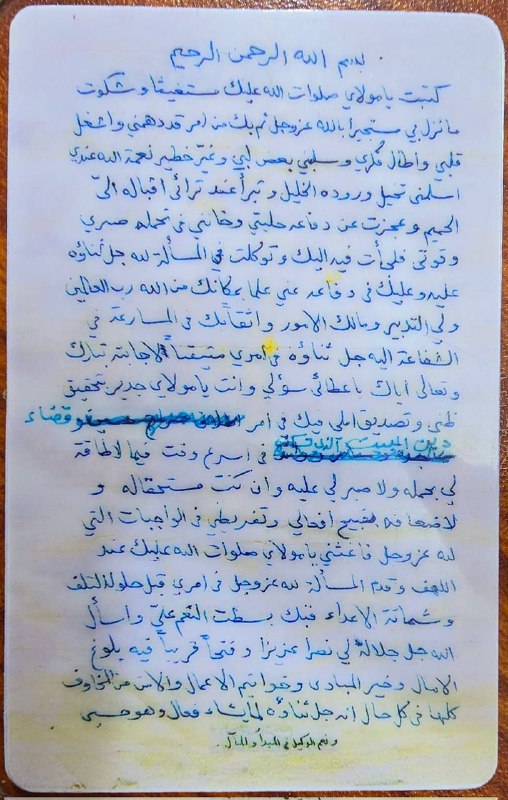 بسم الله الرحمن الرحيم
كتبت يا مولاي صلوات الله عليك مستغيثا وشكوت
ما نزل بي مستجيرا بالله عزوجل ثم بك من امر قد دهمني واشغل
قلبي واطال فكري وسلبني بعض لبي وغيّر خطير نعمة الله عندي
اسلمني تخيل وروده الخليل وتبرأ عند ترائي اقباله اليّ
الحميم وعجزت عن دفاعه حيلتي وخانني في تحمله صبري
وقوتي فلجأت فيه اليك وتوكلت في المسألة لله جل ثناؤه
عليه وعليك في دفاعه عني علما بمكانك من الله رب العالمين
ولي التدبير ومالك الامور واثقا بك في المسارعة في
الشفاعة اليه جل ثناؤه في امري متيقنا لاجابته تبارك
وتعالى اياك باعطائي سؤلي وانت يا مولاي جدير بتحقيق
ظني وتصديق املي فيك في امر وقضاء
في اسرع وقت فيما لا طاقة
لي بحمله ولا صبر لي عليه وان كنت مستحقا له و
لاضعافه بقبيح افعالي وتفريطي في الواجبات التي
لله عزوجل فاغثني يا مولاي صلوات الله عليك عند
اللهف وقدم المسألة لله عزوجل في امري قبل حلول التلف
وشماتة الاعداء فبك بسطت النعم عليّ واسأل
الله جل جلاله لي نصرا عزيزا وفتحا قريبا فيه بلوغ
الامال وخير المبادي وخواتيم الاعمال والامن من المخاوف
كلها في كل حال انه جل ثناؤه لما يشاء فعال وهو حسبي
ونعم الوكيل في المبدأ والمآل